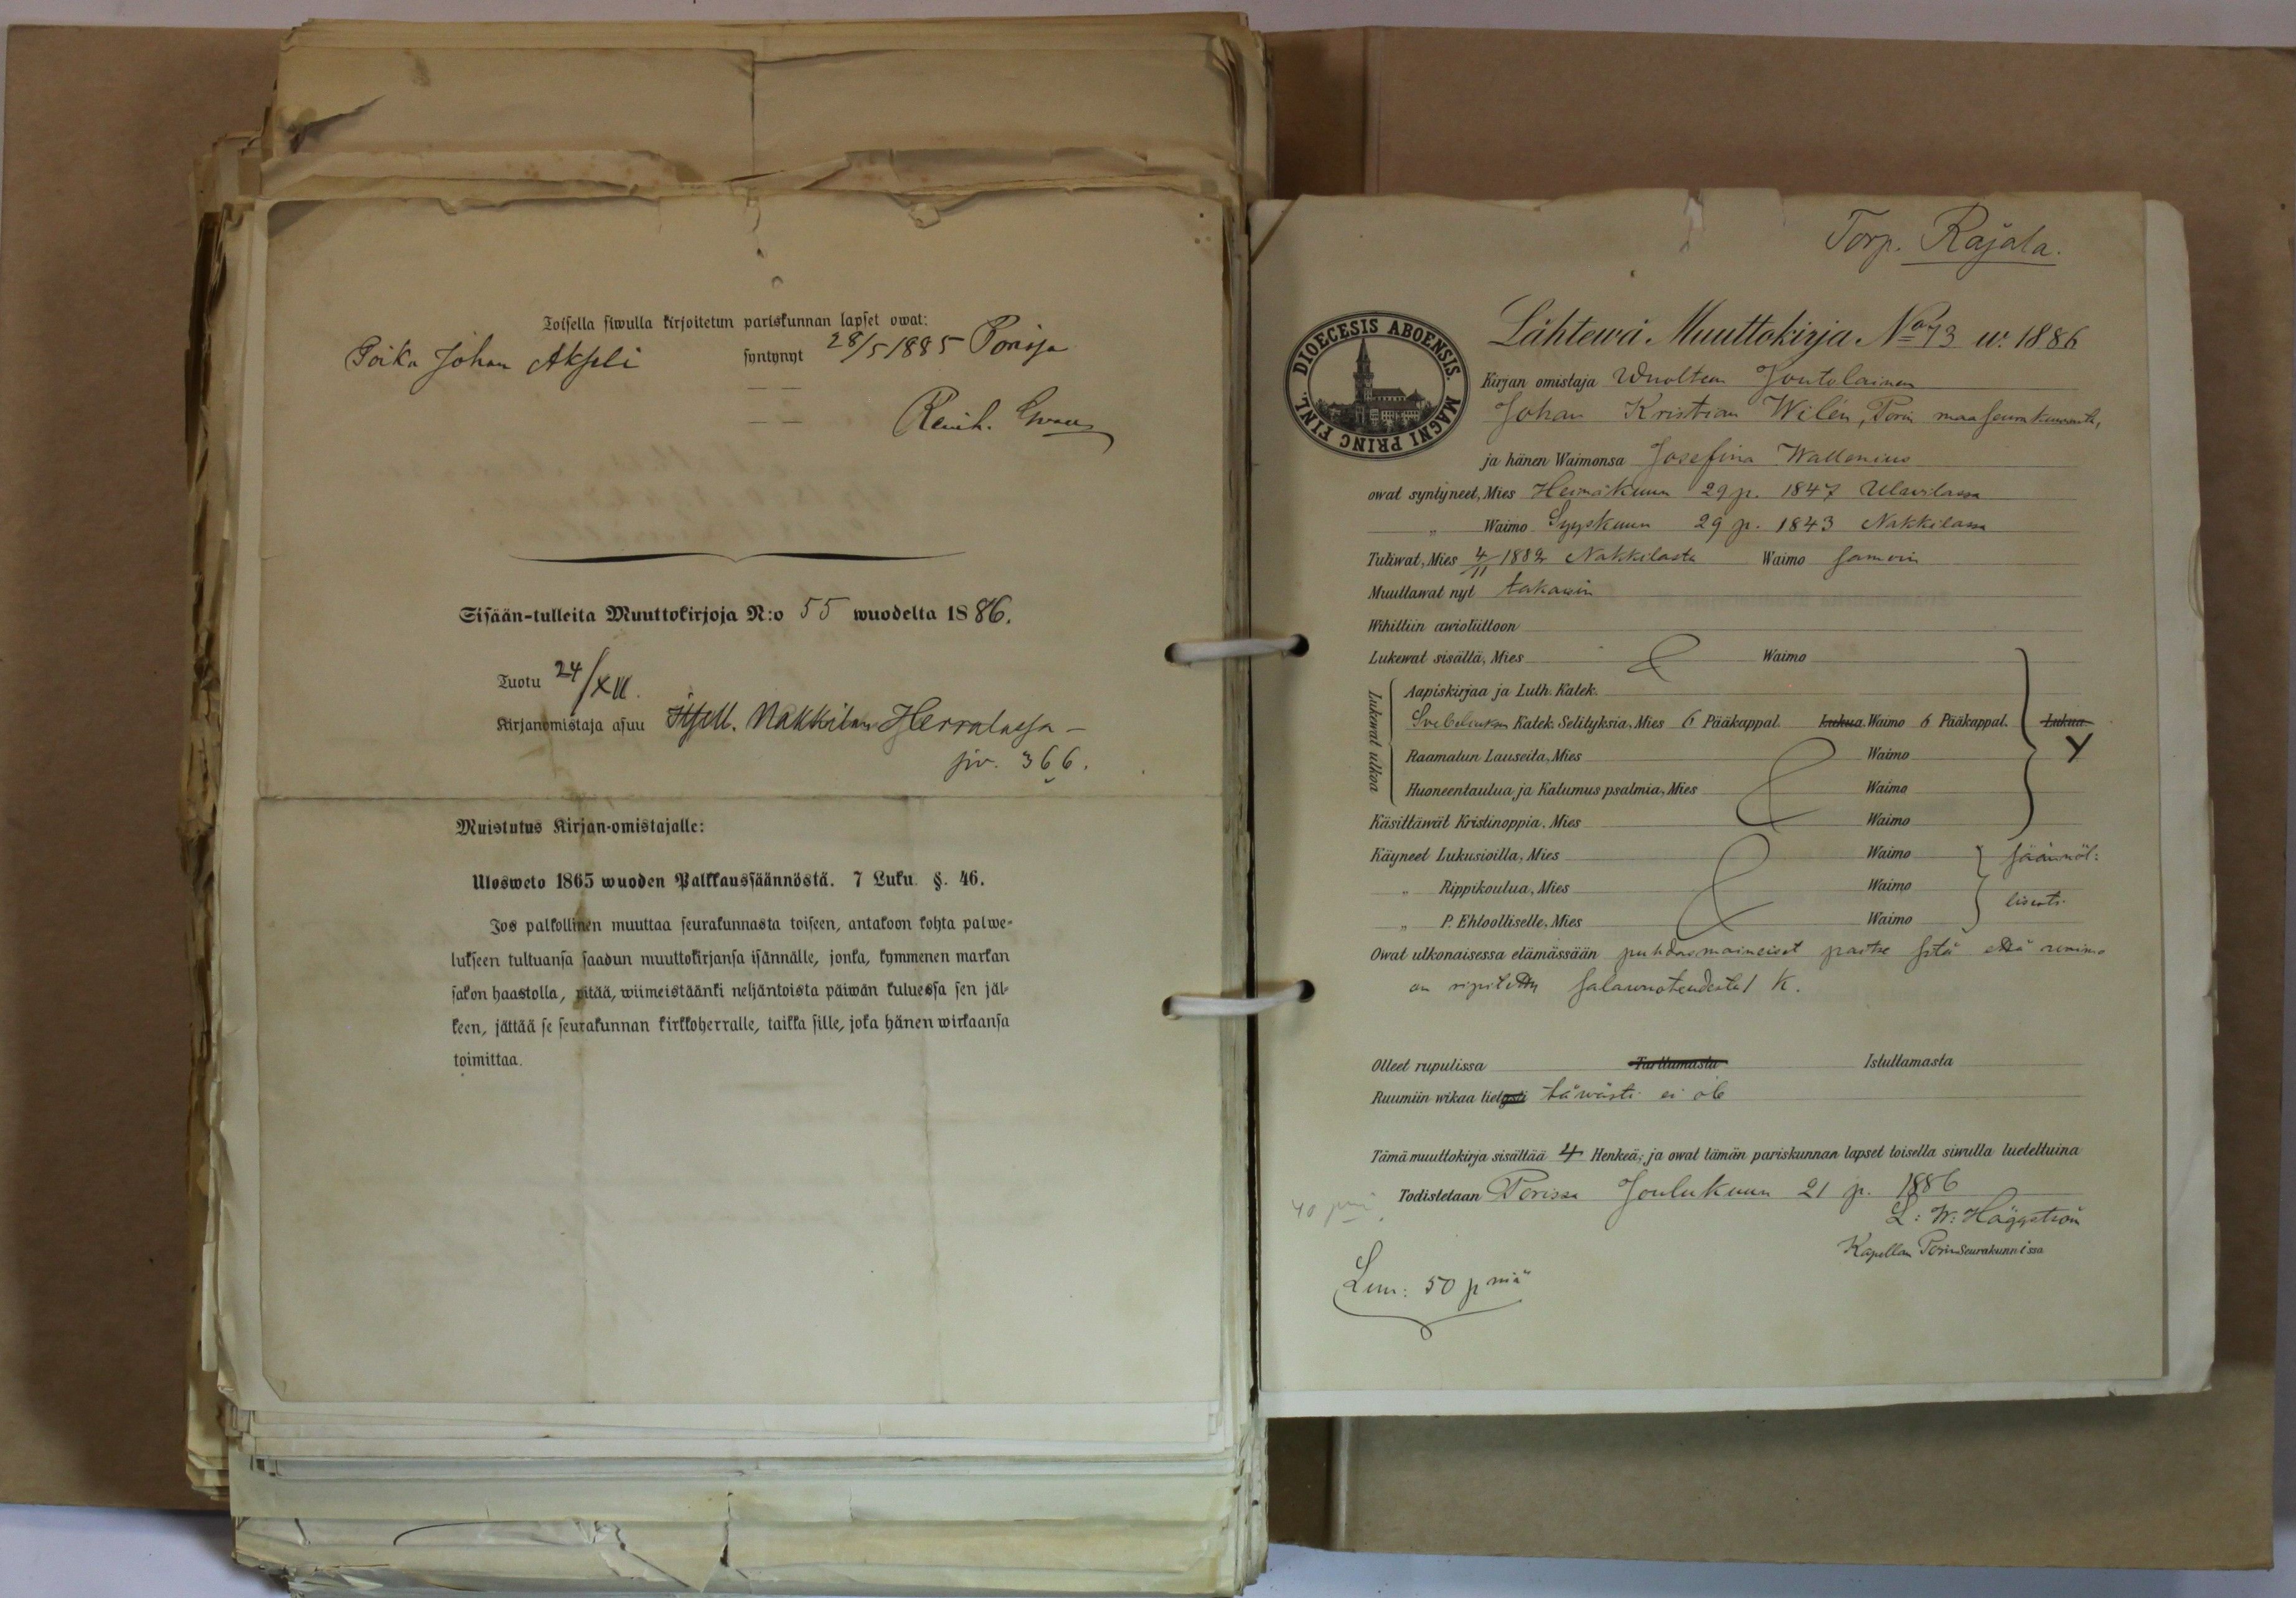 Toisella siwulla kirjoitetun pariskunnan lapset owat:
Poika Johan Akseli syntynyt 28/5 1885 Porissa
Reinh.
Sisään-tulleita Muuttokirjoja N:o 55 wuodelta 1886.
Tuotu 24/XII.
Kirjanomistaja asuu Itsell. Nakkilan Herralassa –
siv. 366.
Muistutus Kirjan-omistajalle:
Ulosweto 1865 wuoden Palkkaussäännöstä. 7 Luku §. 46.
Jos palkollinen muuttaa seurakunnasta toiseen, antakoon kohta palwe-
lukseen tultuansa saadun muuttokirjansa isännälle, jonka, kymmenen markan
sakon haastolla, pitää, wiimeistäänki neljäntoista päiwän kuluessa sen jäl-
keen, jättää se seurakunnan kirkkoherralle, taikka sille, joka hänen wirkaansa
toimittaa.
Torp. Rajala.
DIOECESIS ABOENSIS. MAGNI PRINC FINL.
Lähtewä Muuttokirja No 73 w. 1886
Kirjan omistaja Wuolteen Joutolainen
Johan Kristian Wilén, Porin maaseurakunnasta,
ja hänen Waimonsa Josefina Wallenius
owat syntyneet, Mies Heinäkuun 29 p. 1847 Ulwilassa
„ Waimo Syyskuun 29 p. 1843 Nakkilassa
Tuliwat, Mies 4/11 1882 Nakkilasta Waimo samoin
Muuttawat nyt takasin
Wihittiin awioliittoon
Lukewat sisältä, Mies Waimo
Lukewat ulkoa
Aapiskirjaa ja Luth. Katek.
Svebeliuksen Katek. Selityksiä, Mies 6 Pääkappal. Lukua. Waimo 6 Pääkappal. Lukua
Raamatun Lauseita, Mies Waimo
Huoneentaulua ja Katumus psalmia, Mies Waimo
Käsittäwät Kristinoppia. Mies Waimo
Käyneet Lukusioilla, Mies Waimo säännöl:
„ Rippikoulua, Mies Waimo lisesti
„ P. Ehtoolliselle, Mies Waimo
Owat ulkonaisessa elämässään puhdasmaineiset paitse sitä että waimo
on ripitetty salawuoteudesta 1 K.
Olleet rupulissa Tarttumasta Istuttamasta
Ruumiin wikaa tietysti täwästi ei ole
Tämä muuttokirja sisältää 4 Henkeä; ja owat tämän pariskunnan lapset toisella siwulla lueteltuina
Todistetaan Porissa Joulukuun 21 p. 1886
L: W: Häggström
Kapellan Porin Seurakunnissa
40 pniä
Lun: 50 pniä